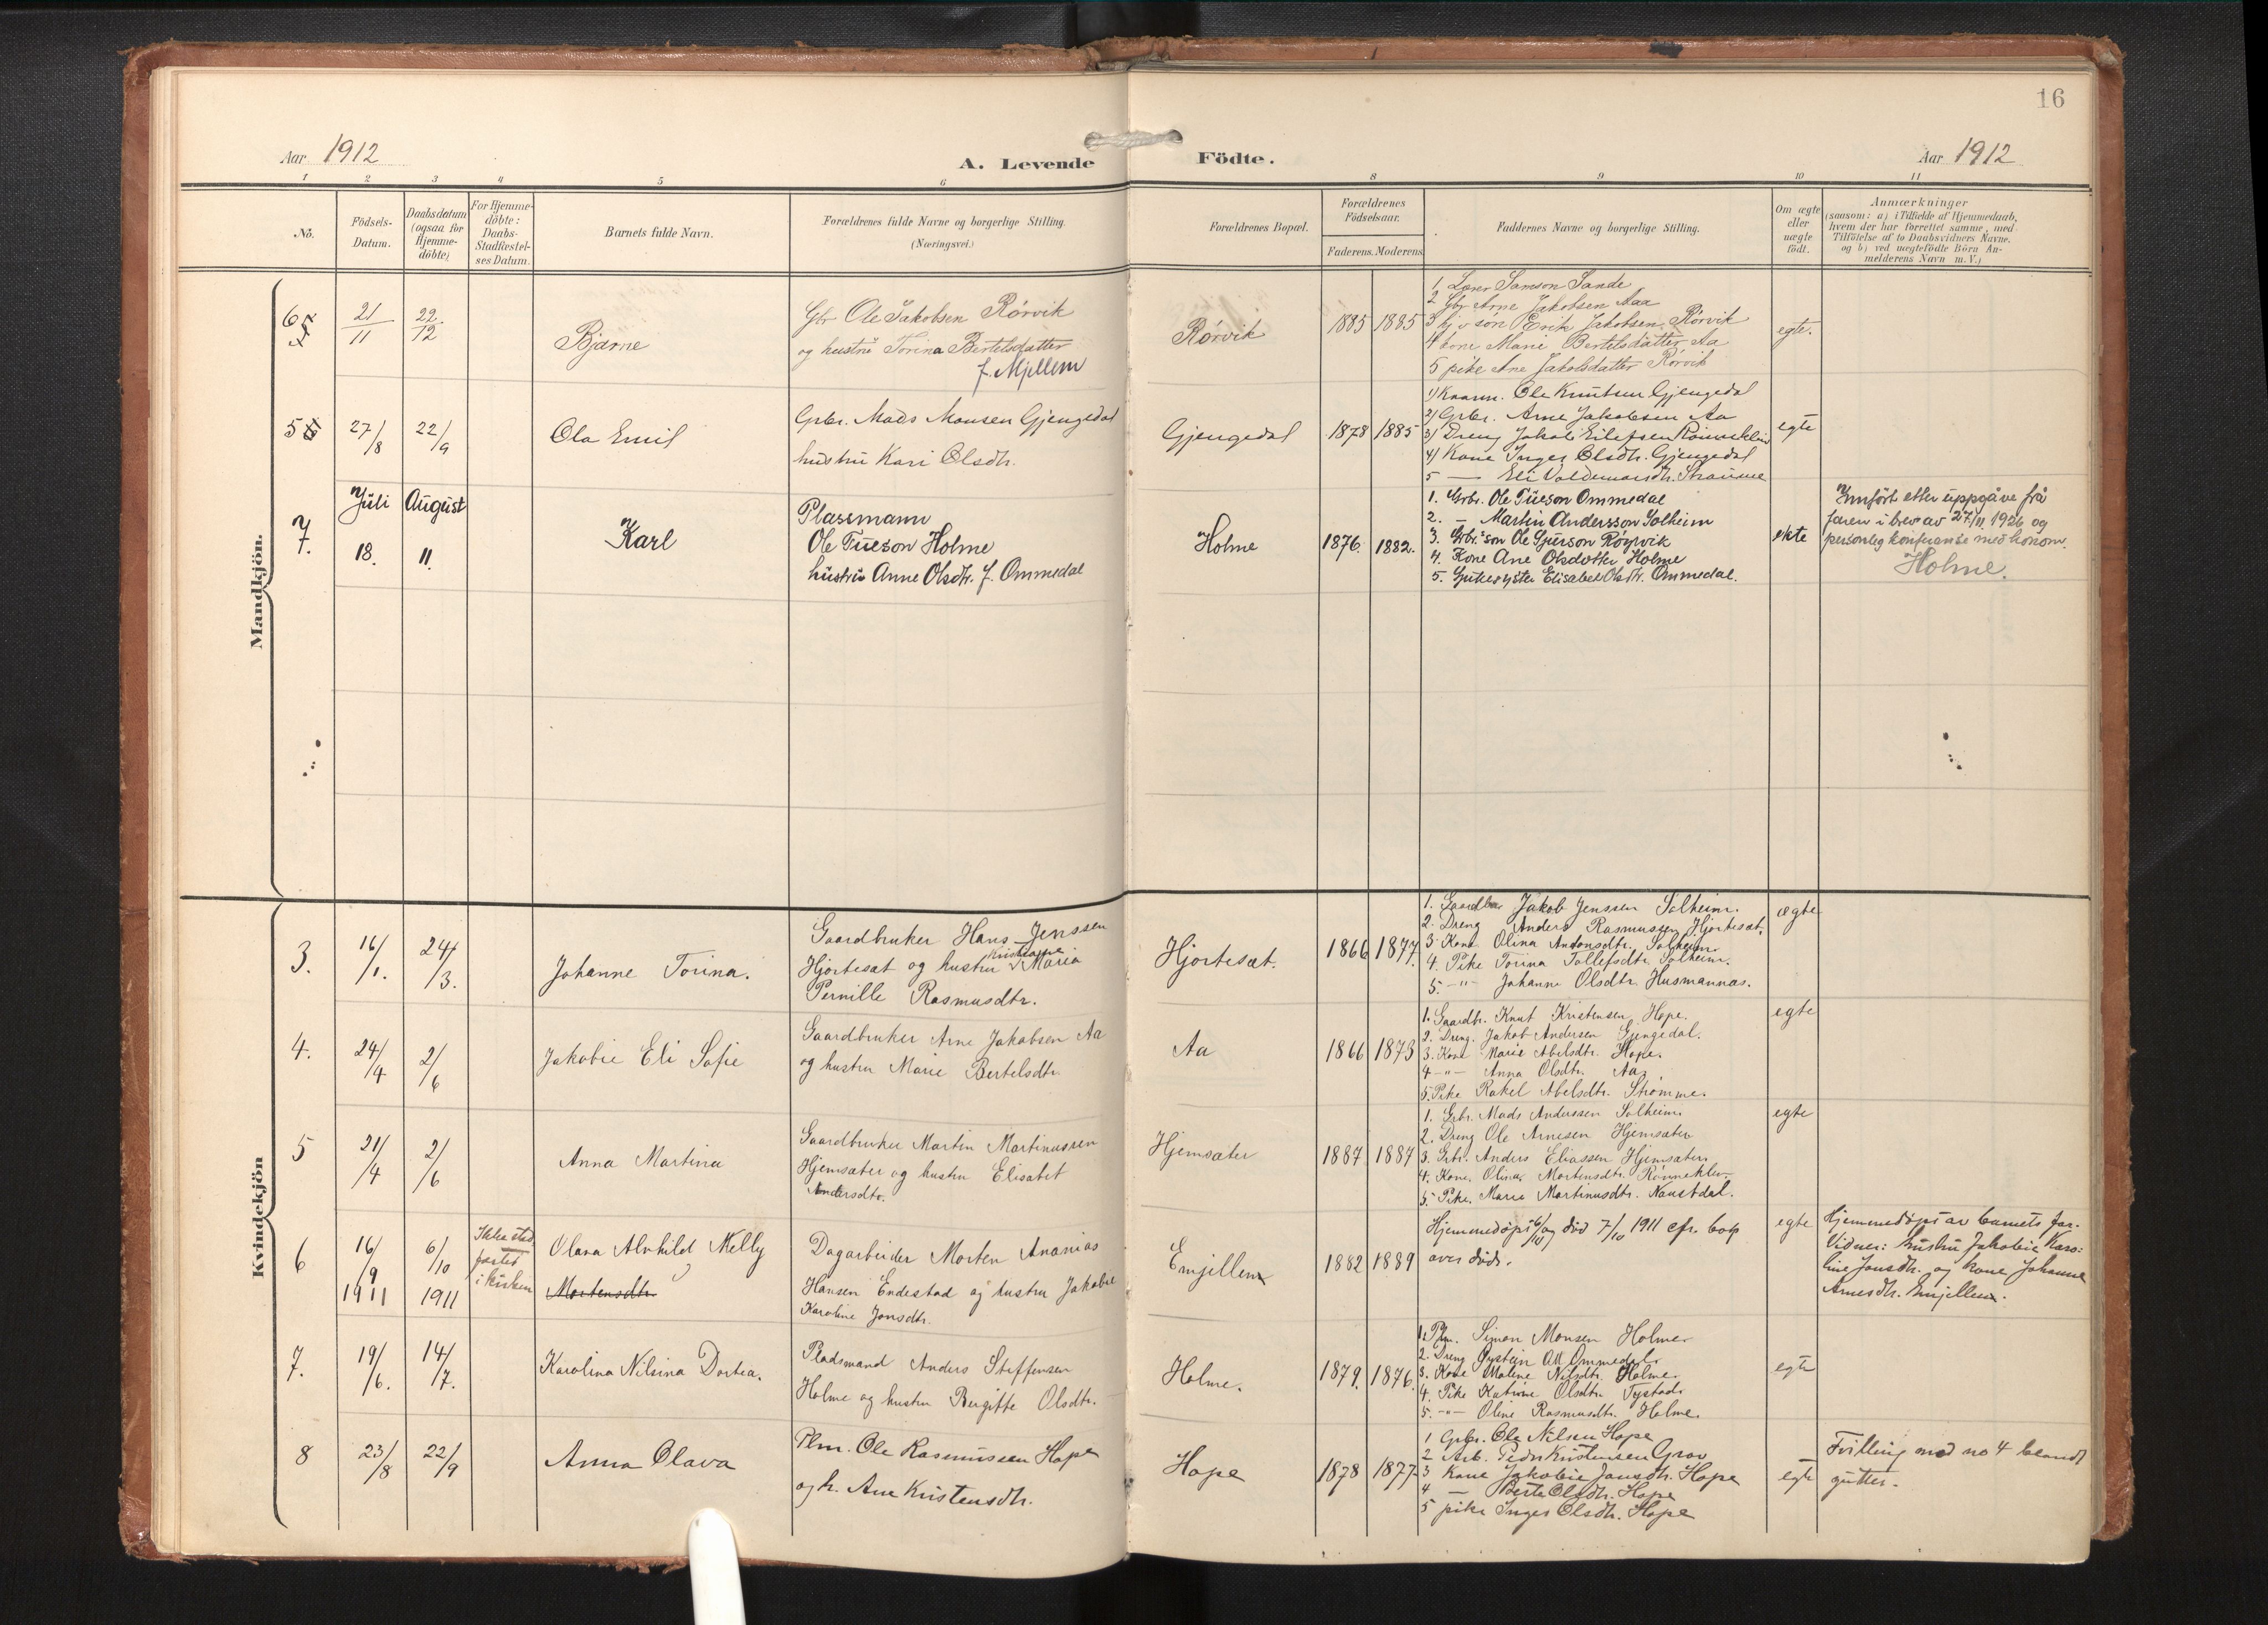 16
Aar 1912
A. Levende Födte.
Aar 1912
1 2 3 4 5 6 8 9 10 11
No.
Födsels-
Datum.
Daabsdatum
(ogsaa for
Hjemme-
döbte)
For Hjemme-
döbte:
Daabs-
Stadfæstel-
ses Datum.
Barnets fulde Navn.
Forældrenes fulde Navne og borgerlige Stilling.
(Næringsvei.)
Forældrenes Bopæl.
Forældrenes
Födselsaar.
Faderens. Moderens.
Faddernes Navne og borgerlige Stilling.
Om ægte
eller
uægte
födt.
Anmærkninger
(saasom: a) i Tilfælde af Hjemmedaab,
hvem der har forrettet samme, med
Tilföielse af to Daabsvidners Navne.
og b) ved uægtefödte Börn An-
melderens Navn m. V.)
Mandkjön.
6
21/11
22/12
Bjarne
Gbr Ole Jakobsen Rørvik
og hustru Torina Bertelsdatter
f. Mjellem
Rørvik
1885 1885
1 Lærer Samson Sande
2 Gbr Arne Jakobsen Aa
3 søn Erik Jakobsen Rørvik
4 kone Marie Bertelsdatter Aa
5 pike Ane Jakobsdatter Rørvik
egte.
5
27/8
22/9
Ola Emil
Grbr. Mads Monsen Gjengedal
hustru Kari Olsdtr.
Gjengedal
1878 1885
1) Ole Knutsen Gjengedal
2) Grbr. Arne Jakobsen Aa
3) Dreng Jakob Eilefsen Rønneklev
4) Kone Inger Olsdtr. Gjengedal
5 — Eli Valdemarsdtr. Straumme
egte
7.
Juli
18.
August
11.
Karl
Plassmann
Ole Tueson Holme
hustru Anne Olsdtr. f. Ommedal
Holme
1876. 1882.
1. Grbr. Ole Tueson Ommedal
2. — Martin Andersson Solheim
3. Grbr. son Ole Gjerson Röyrvik
4. Kone Ane Olsdotter Holme
5. Elisabet Olsdtr. Ommedal.
ekte
Innfört etter uppgåve frå
faren i brev av 27/11 1926 og
personleg konferanse med honom.
Holme.
Kvindekjön
3.
16/1.
24/3.
Johanne Torina.
Gaardbruker Hans Jenssen
Hjortesæt og hustru Kristianne Maria
Pernille Rasmusdtr.
Hjortesæt.
1866 1877.
1. Gaardbr. Jakob Jenssen Solheim.
2. Dreng Anders Rasmussen Hjortesæt.
3. Kone Olina Antonsdtr. Solheim
4. Pike Torina Tollefsdtr. Solheim.
5. —"— Johanne Olsdtr. Husmannas.
ægte
4.
24/4
2/6
Jakobie Eli Sofie
Gaardbruker Arne Jakobsen Aa
og hustru Marie Bertelsdtr
Aa
1866 1873
1. Gaardbr. Knut Kristensen Hope.
2. Dreng. Jakob Andersen Gjengedal.
3. Kone Marie Abelsdtr. Hope.
4 —"— Anna Olsdtr. Aa.
5. Pike Rakel Abelsdtr. Strømme.
egte
5
21/4
2/6
Anna Martina
Gaardbruker Martin Martinussen
Hjemsæter og hustru Elisabet
Andersdtr.
Hjemsæter
1887 1887
1. Grbr. Mads Anderssen Solheim
2. Dreng Ole Arnesen Hjemsæter
3. Grbr. Anders Eliassen Hjemsæter
4. Kone Olina Martinsdtr. Rønneklev
5. Pike. Marie Martinusdtr. Naustdal.
egte
6
16/9
1911
6/10
1911
Ikke stad-
fæstet
i kirken
Olava Alvhild Nelly
Mortensdtr.
Dagarbeider Morten Ananias
Hansen Endestad og hustru Jakobie
Karoline Jonsdtr.
Emjellem
1882 1889
Hjemmedøpt 6/10 og død 7/10 1911 cfr. bok
over døde.
egte
Hjemmedøpt av barnets far.
Vidner: hustru Jakobie Karo-
line Jonsdtr. og kone Johanne
Arnesdtr. Emjellem.
7.
19/6.
14/7.
Karolina Nilsina Dortea.
Pladsmand Anders Steffensen
Holme og hustru Bergitte Olsdtr.
Holme.
1879. 1876.
1. Plm. Simon Monsen Holme
2. Dreng Øystein Ommedal
3. Kone Malene Nilsdtr. Holme
4. Pike Katrine Olsdtr. Tystad
5. —"— Oline Rasmusdtr. Holme.
egte
8
23/8
22/9
Anna Olava
Plm. Ole Rasmussen Hope
og h. Ane Kristensdtr.
Hope
1878 1877
1 Grbr. Ole Nilsen Hope
2 Arb. Peder Kristensen Grov
3 Kone Jakobie Jonsdtr. Hope
4 — Berte Olsdtr. Hope
5 pike Inger Olsdtr. Hope
egte
Tvilling med no 4 blandt
gutter.